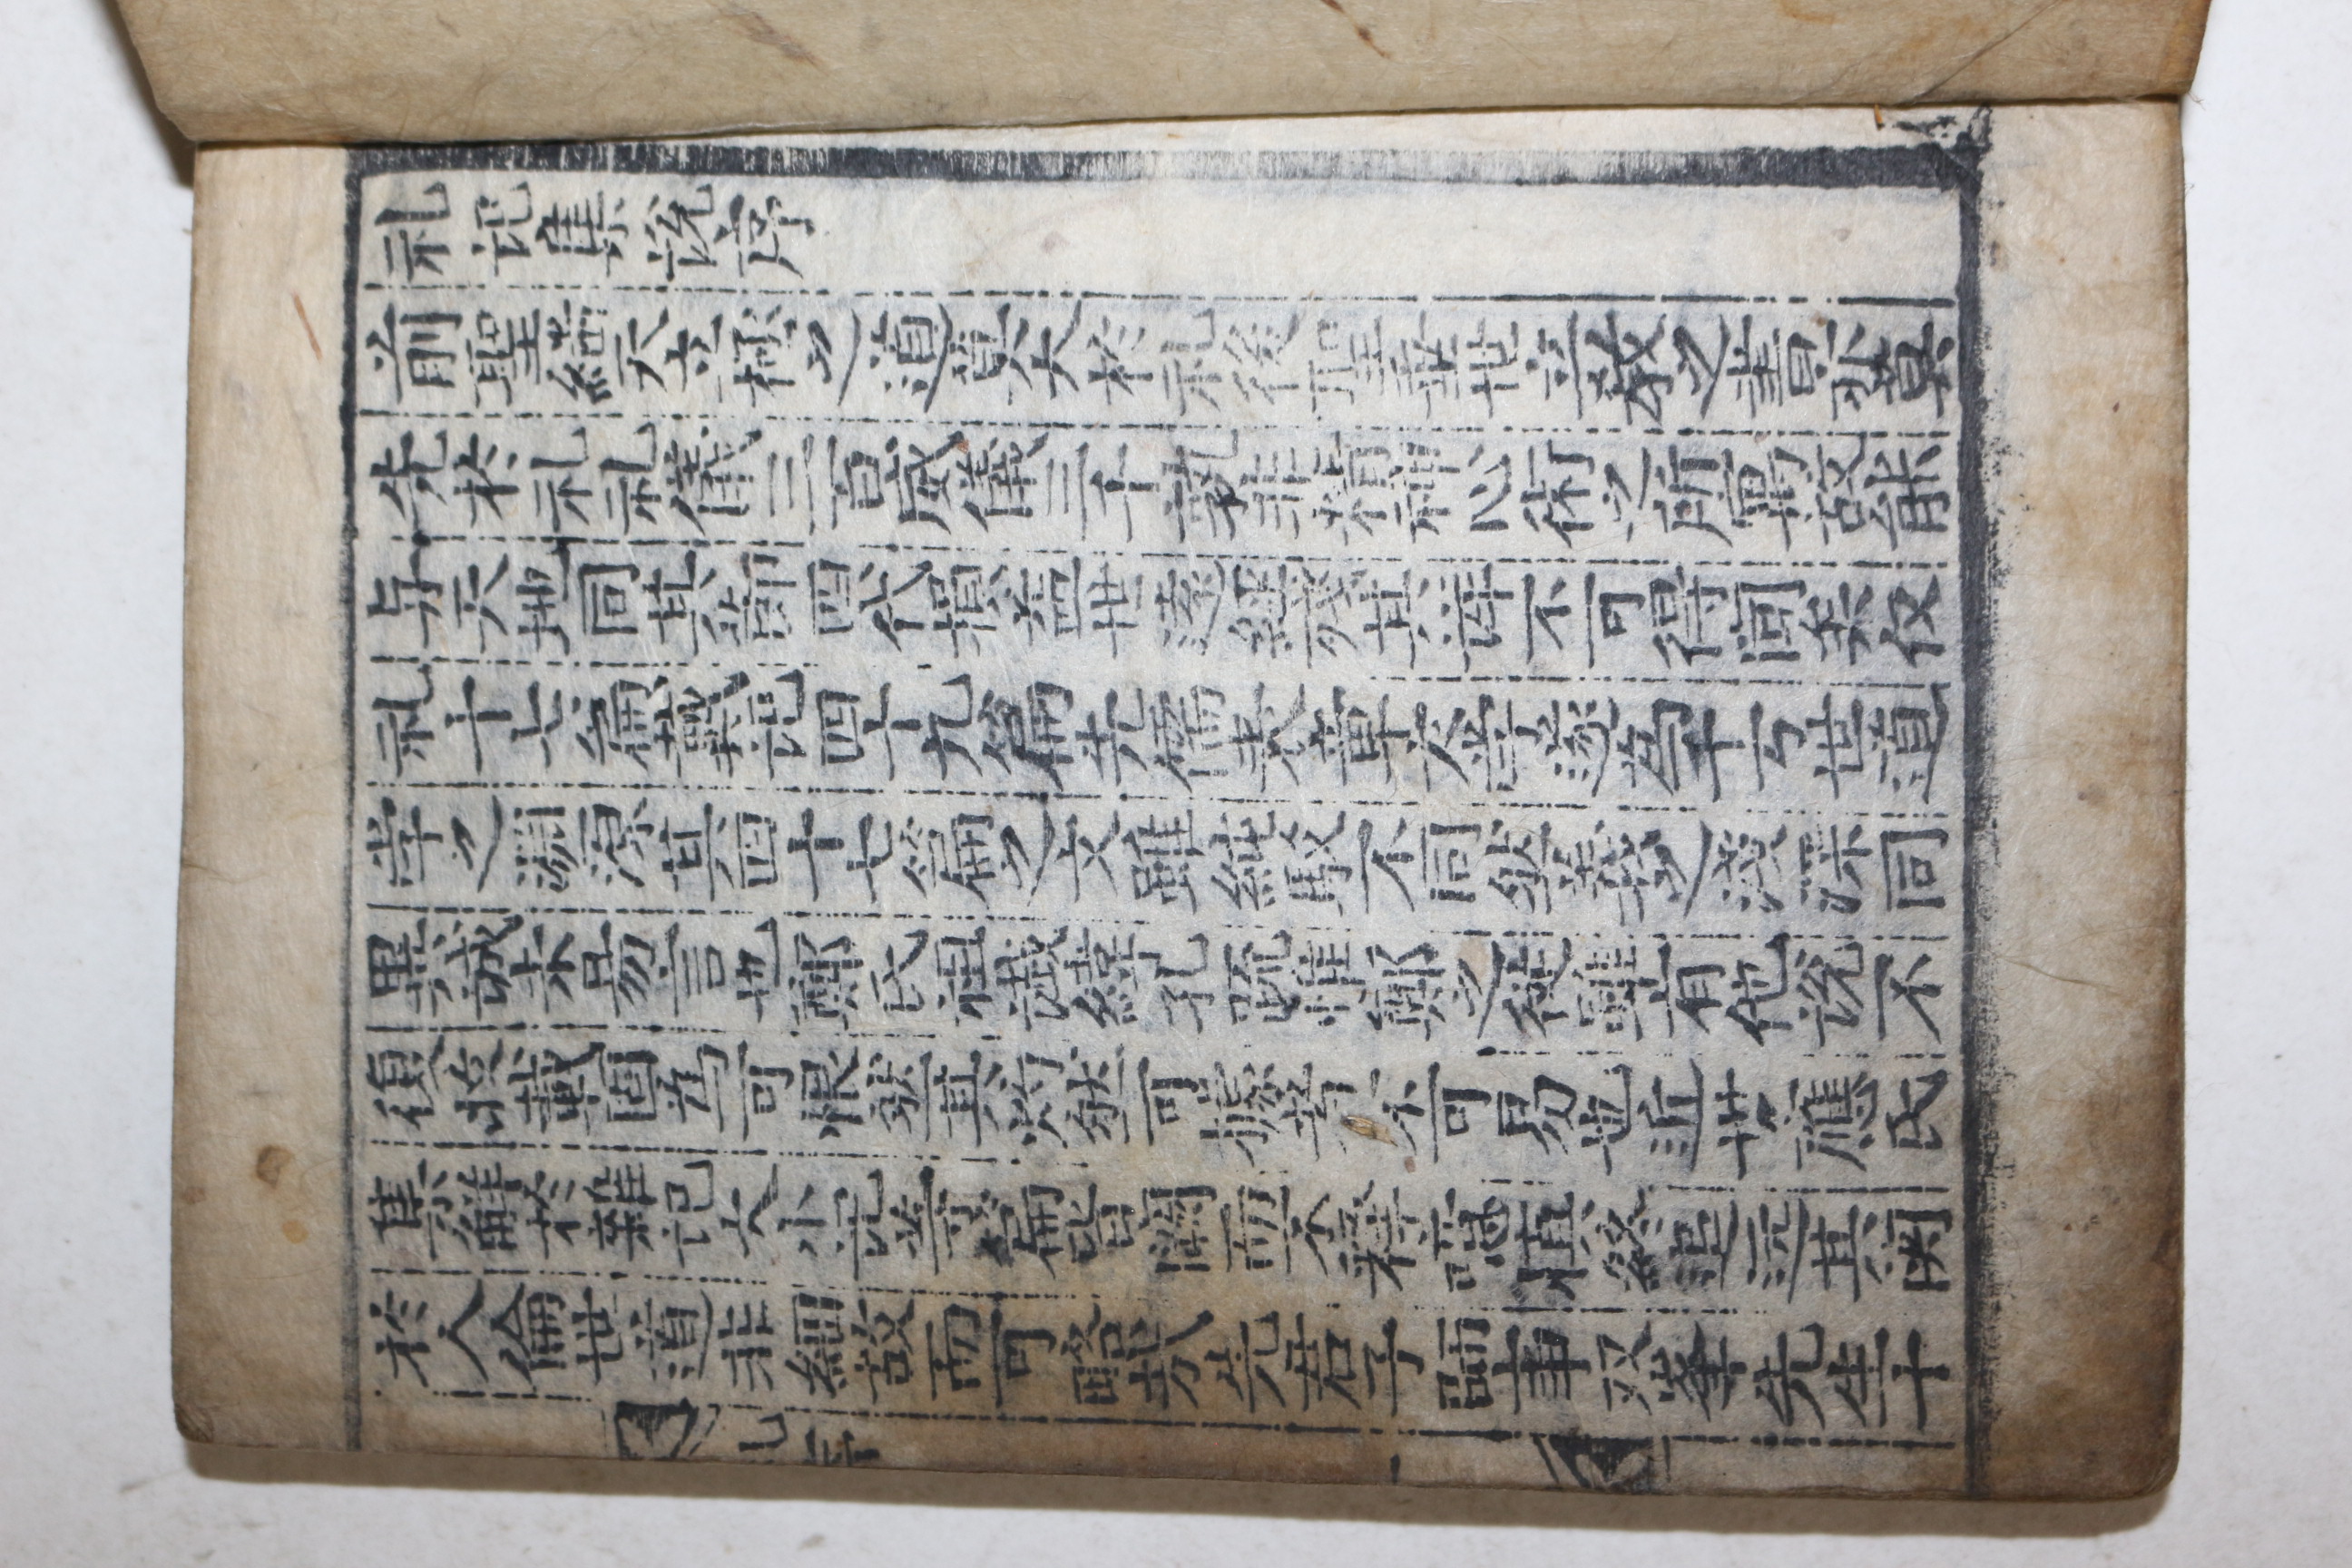 礼記集説序
前聖繼天立極之道莫大於礼後聖垂世立教之書亦莫
先於礼礼儀三百威儀三千孰非精神心術之所寓故能
与天地同其節四代損益世遠經殘其詳不可得聞矣仪
礼十七篇戴記四十九篇先儒表章庸学遂為千万世道
学之渊源其四十七篇之文雖純駁不同然義之浅深同
異誠未易言也鄭氏祖讖緯孔疏惟鄭之從雖有他説不
復收載固為可恨然其灼然可據者不可易也近世應氏
集觧於雜記大小記等篇皆闕而不释噫慎終追远其関
於人倫世道非細故而可略哉先君子師事双峯先生十
礼序